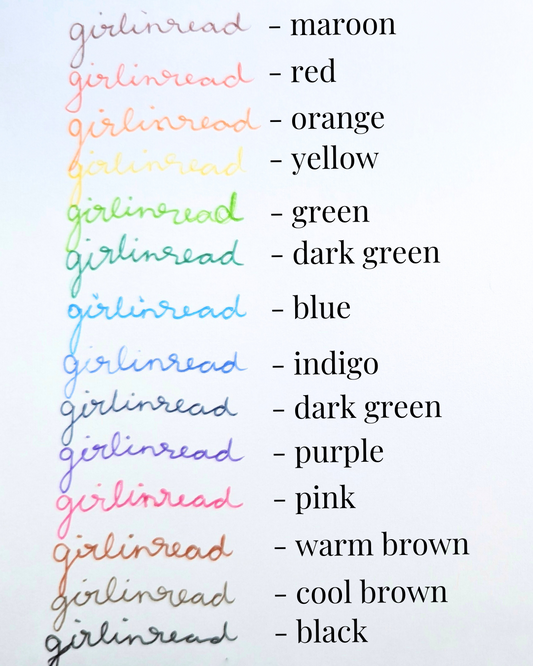 girlinread - maroon
girlinread - red
girlinread - orange
girlinread - yellow
girlinread - green
girlinread - dark green
girlinread - blue
girlinread - indigo
girlinread - dark green
girlinread - purple
girlinread - pink
girlinread - warm brown
girlinread - cool brown
girlinread - black